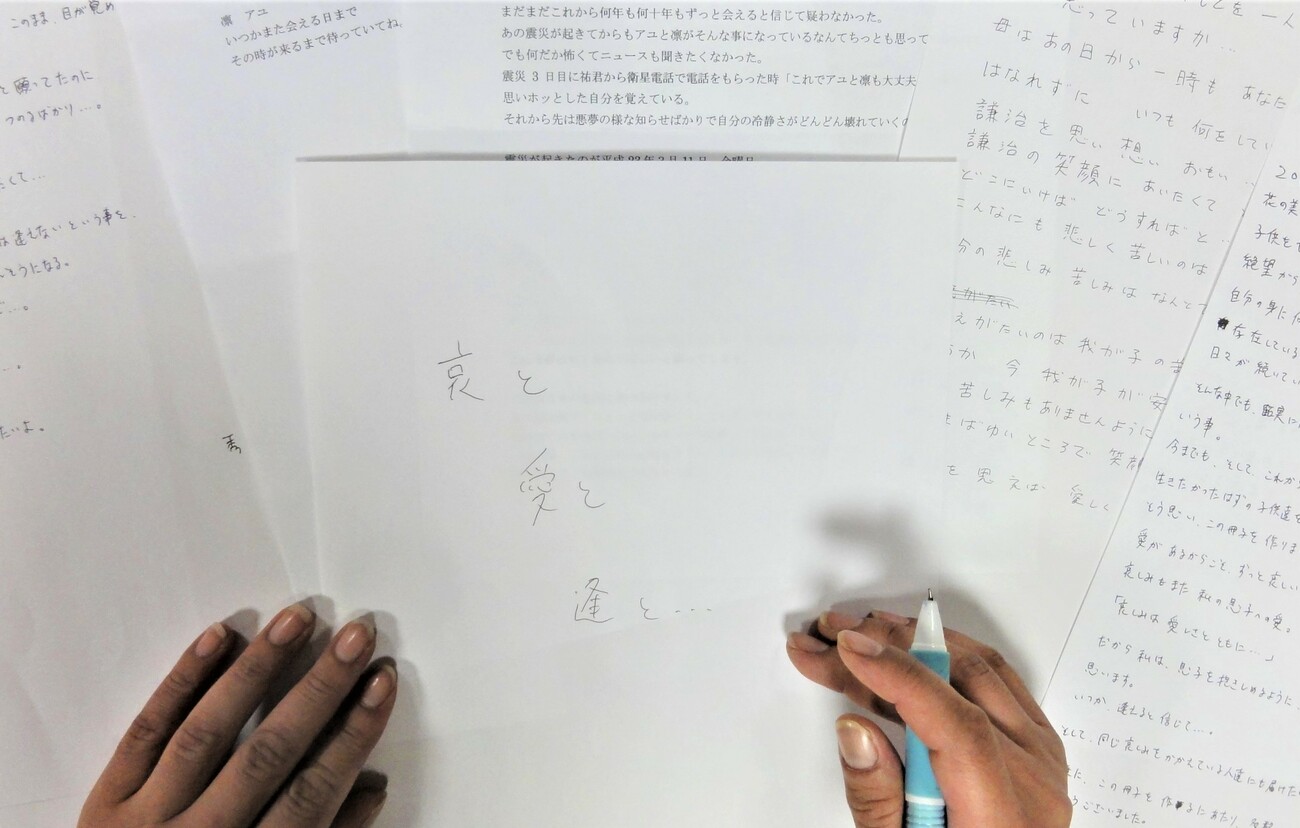 このまま、目が覚め
と願ってたのに
つのるばかり…。
たくて…
は逢えないという事を、
そうになる。
…。
たいよ。
凛 アユ
いつかまた会える日まで
その時が来るまで待っていてね。
まだまだこれから何年も何十年もずっと会えると信じて疑わなかった。
あの震災が起きてからもアユと凛がそんな事になっているなんてちっとも思って
でも何だか怖くてニュースも聞きたくなかった。
震災 3 日目に祐君から衛星電話で電話をもらった時「これでアユと凛も大丈夫
思いホッとした自分を覚えている。
それから先は悪夢の様な知らせばかりで自分の冷静さがどんどん壊れていくの
震災が起きたのが平成 23 年 3 月 11 日 金曜日
哀と
愛と
逢と…
一人
思っていますか…
母はあの日から一時も あなた
はなれずに いつも 何をしてい
謙治を思い 想い おもい…
謙治の笑顔に あいたくて
どこにいけば どうすれば と…
こんなにも 悲しく 苦しいのは
分の悲しみ 苦しみは なんと
えがたいのは 我が子の苦
うか 今 我が子が安
苦しみもありませんように
まばゆい ところで 笑顔
を思えば 愛しく
20
花の美
子供を
絶望から
自分の身に
存在している
日々が続いてい
そんな中でも、確実に
いう事。
今までも、そして、これから
生きたかったはずの子供達を
そう思い、この冊子を作りま
愛があるからこそ、ずっと哀しい
哀しみもまた 私の息子への愛。
「哀しみは 愛しさと ともに…」
だから私は、息子を抱きしめるように、
思います。
いつか、逢えると信じて…。
そして、同じ哀しみをかかえている人達にも届けたい
この冊子を作るにあたり、
うございました。